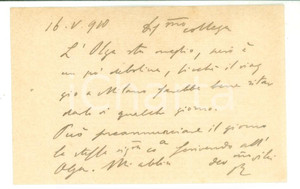 16. V 900
collega
L'Olga sta meglio, però è
un po' debolina, sicché il viag
gio a Milano sarebbe bene ritar
darlo di qualche giorno.
Può preannunciare il giorno
la stessa scrivendo all'
Olga. Mi abbia